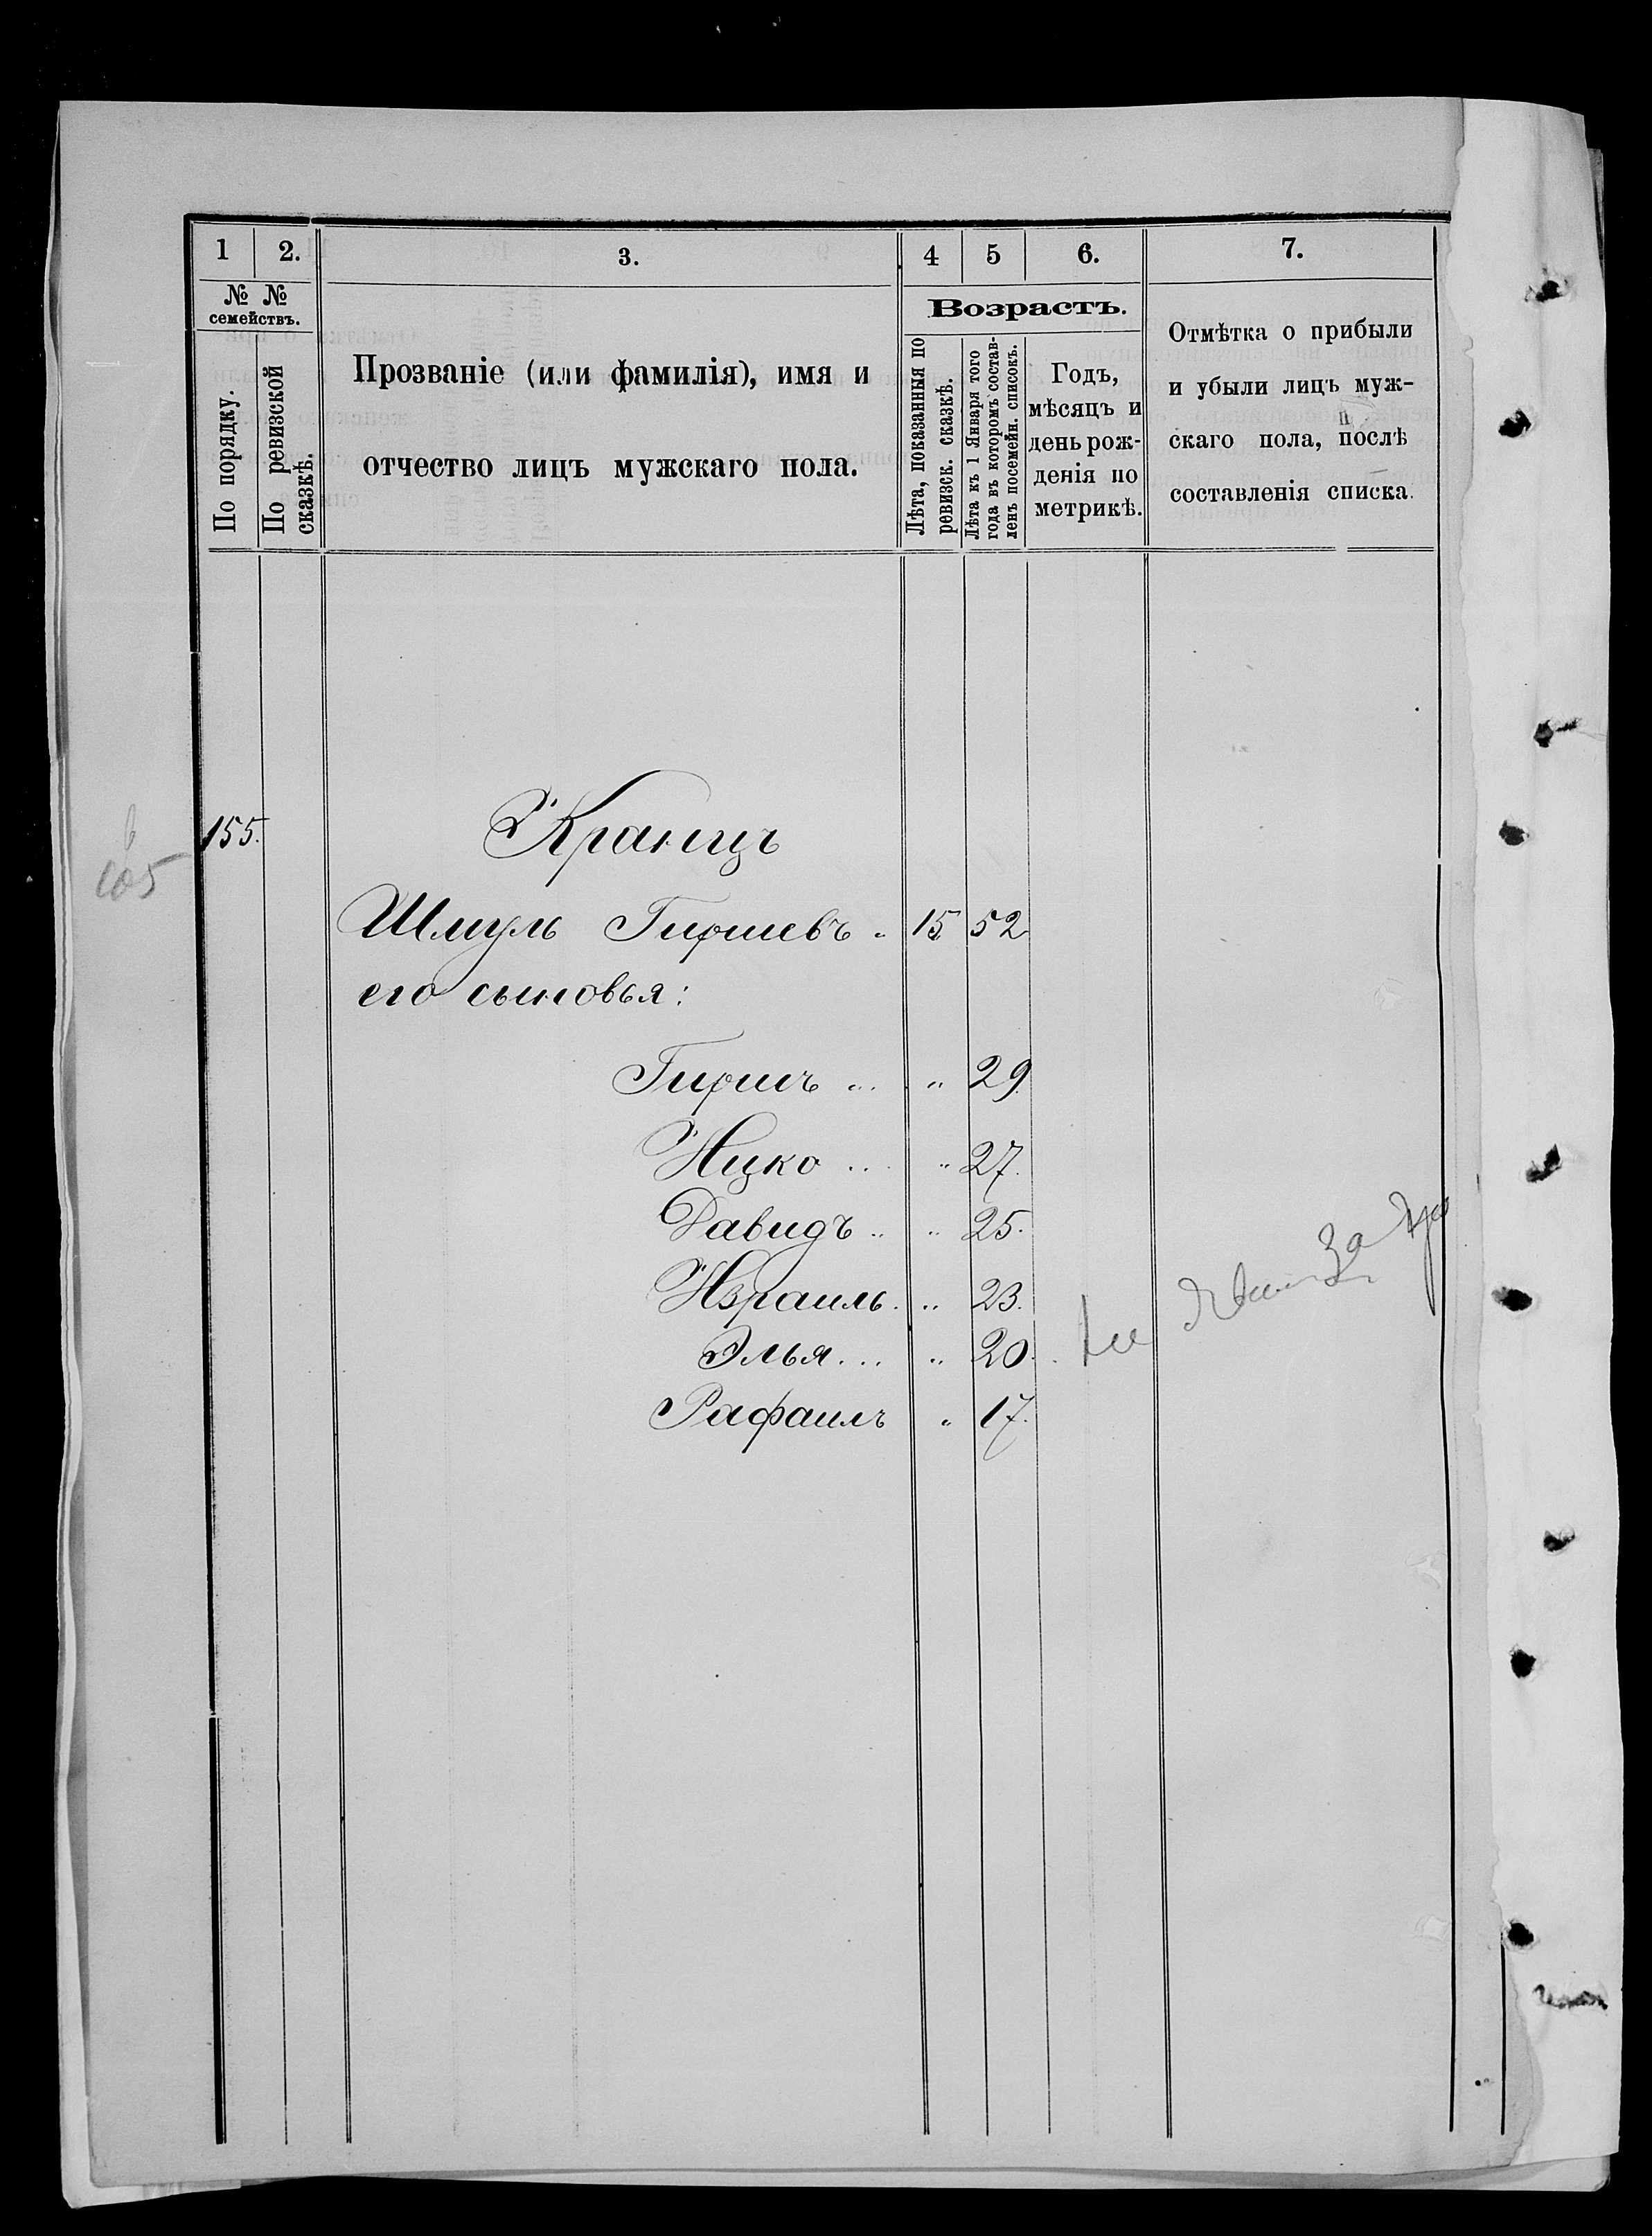 1 2. 3. 4 5 6. 7.
№ № семействъ.
По порядку.
По ревизской сказкѣ.
Прозваніе (или фамилія), имя и
отчество лицъ мужскаго пола.
Возрастъ.
Лѣта, показанныя по
ревизск. сказкѣ.
Лѣта къ 1 Января того
года въ которомъ состав-
ленъ посемейн. списокъ.
Годъ,
мѣсяцъ и
день рож-
денія по
метрикѣ.
Отмѣтка о прибыли
и убыли лицъ муж-
скаго пола, послѣ
составленія списка.
155. Кранцъ
Шмуль Гиршевъ 15 52
его сыновья:
Гиршъ ... " 29
Ицко ... " 27.
Давидъ .. " 25.
Израиль. " 23.
Элья... " 20.
Рафаилъ " 17.